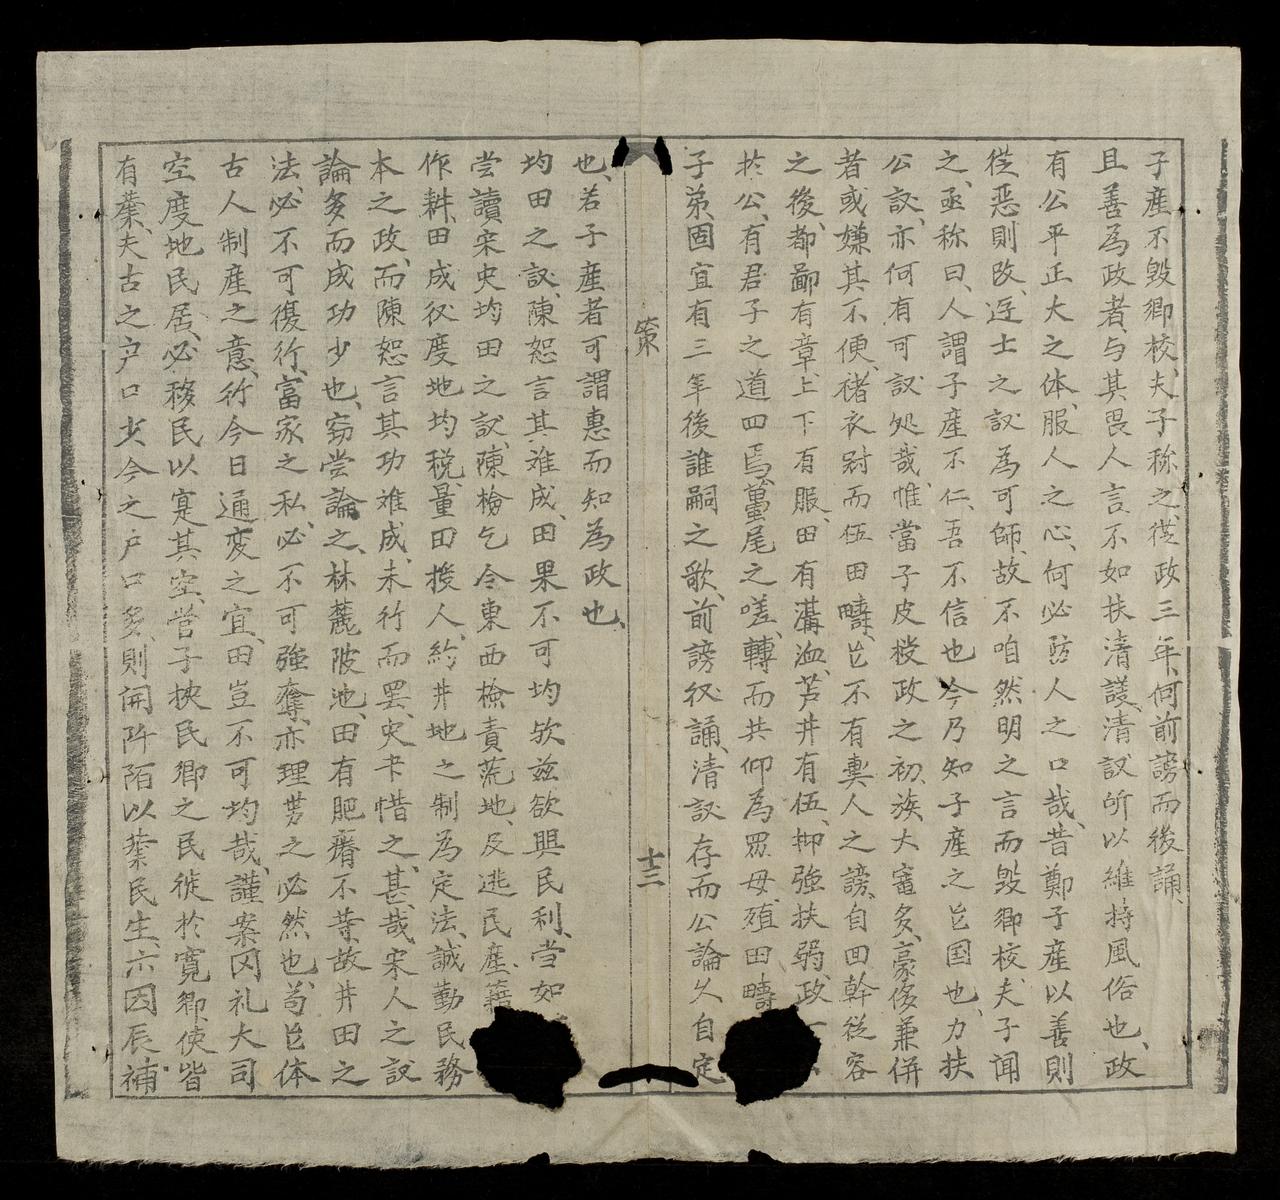 子產不毀鄉校、夫子称之、從政三年、何前謗而後誦、
且善為政者、与其畏人言、不如扶清議、清訳所以維持風俗也、政
有公平正大之体、服人之心、何必防人之口哉、昔鄭子產以善則
從惡則改、迓士之訳為可師、故不咱然明之言而毀鄉校、夫子聞
之、亟称曰、人謂子產不仁、吾不信也、今乃知子產之㠯国也、力扶
公訳、亦何有可訳処哉、惟當子皮授政之初、族大寵多、豪侈兼併
者或嫌其不便、褚衣尉而伍田疇、㠯不有輿人之謗、自田幹從容
之後、都鄙有章、上下有服、田有溝洫、芦井有伍、抑強扶弱、政一
扵公、有君子之道四焉、蠆尾之嗟、轉而共仰為眾母、殖田疇
子弟、固宜有三年後誰嗣之歌、前謗後誦、清訳存而公論久自定
策
十三
也、若子產者可謂惠而知為政也、
均田之訳、陳恕言其难成、田果不可均欤、兹欲興民利、当如
尝讀宋史均田之訳、陳檢乞令東西檢責荒地、及逃民產籍
作耕、田成後度地均税、量田授人、約井地之制為定法、誠勤民務
本之政、而陳恕言其功难成、未行而罢、史书惜之、甚哉宋人之訳
論多而成功少也、窃尝論之、林麓陂池、田有肥瘠不等、故井田之
法、必不可復行、富家之私、必不可強奪、亦理势之必然也、苟㠯体
古人制產之意、行今日通变之宜、田豈不可均哉、謹案冈礼大司
空度地民居、必移民以寔其空、营子挾民鄉之民徙扵寬鄉、使皆
有業、夫古之户口少、今之户口多、則開阡陌以業民生、亦因辰補